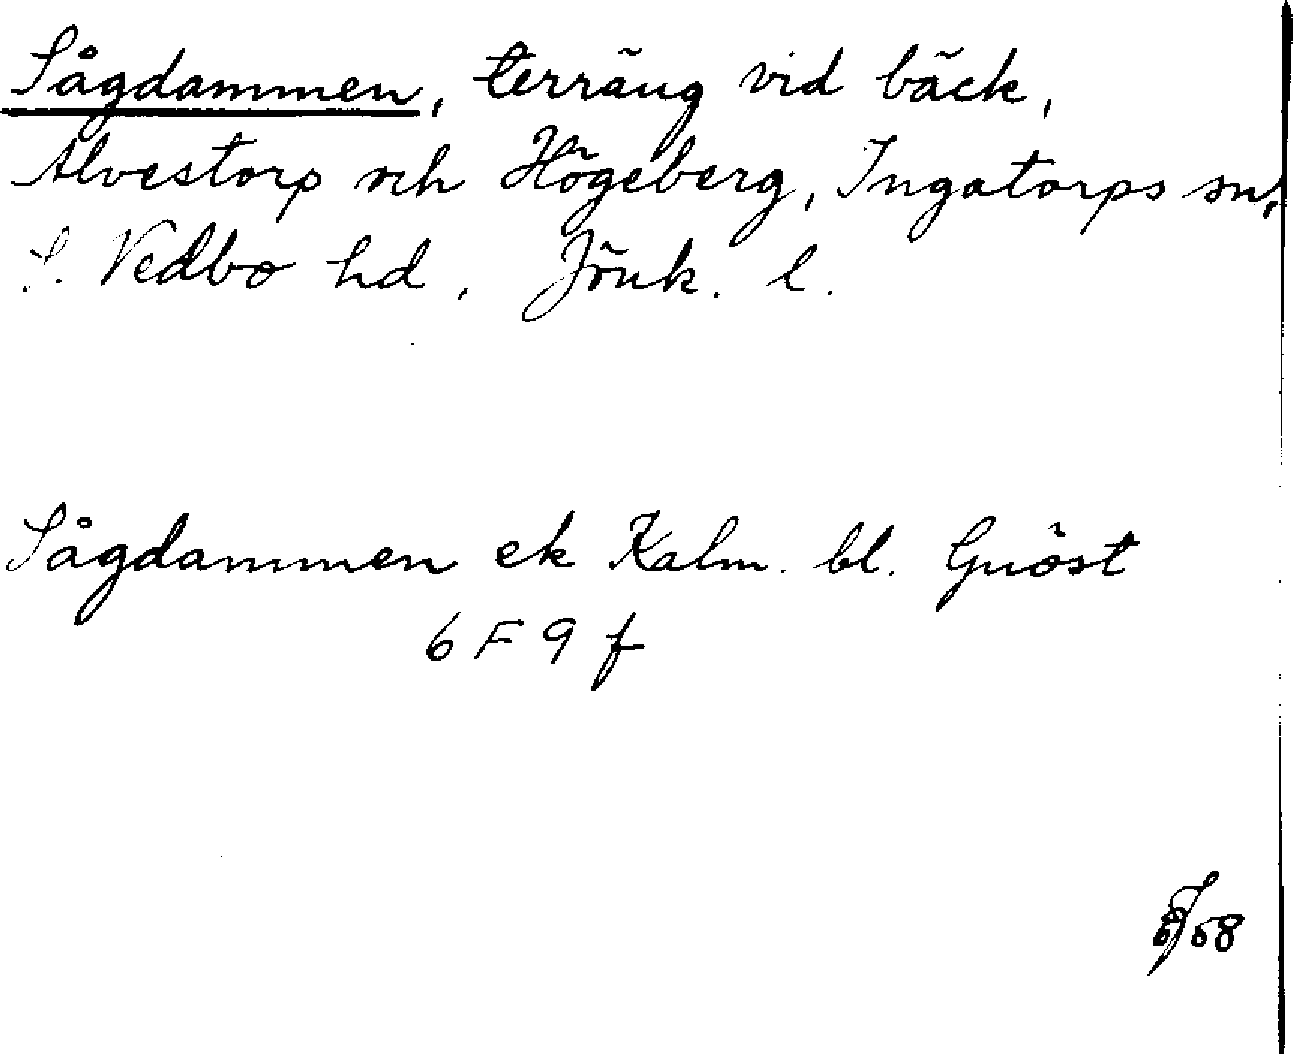 Sågdammen, terräng vid bäck,
Alvestorp och Högeberg, Ingatorps sn,
S. Vedbo hd, Jönk. l.
Sågdammen ek Kalm. bl. Gnöst
6 F 9 f